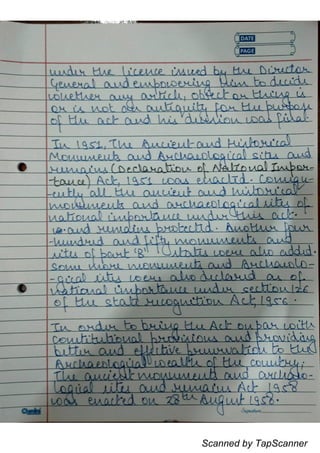 DATE
PAGE
under the licence issued by the Director
General and empowering him to decide
whether any article, object or thing is
or is not an antiquity for the purpose
of the act and his decision was final.
In 1951, The Ancient and Historical
Monuments and Archaeological sites and
remains (Declaration of National Impor-
-tance) Act, 1951 was enacted. Conseque-
-ently all the ancient and historical
monuments and archaeological sites of
national importance under this act
and remains protected. Another four
-hundred and fifty monuments and
sites of part 'B' states were also added.
Some more monuments and Archaeolo-
-gical sites were also declared as of
national importance under section 126
of the state recognition Act, 1956.
In order to bring the Act on par with
constitutional provisions and providing
better and effective preservation to the
Archaeological wealth of the country,
The ancient monuments and archaeo-
logical sites and remains Act 1958
was enacted on 28th August 1958.
Classmate
Signature
Scanned by TapScanner